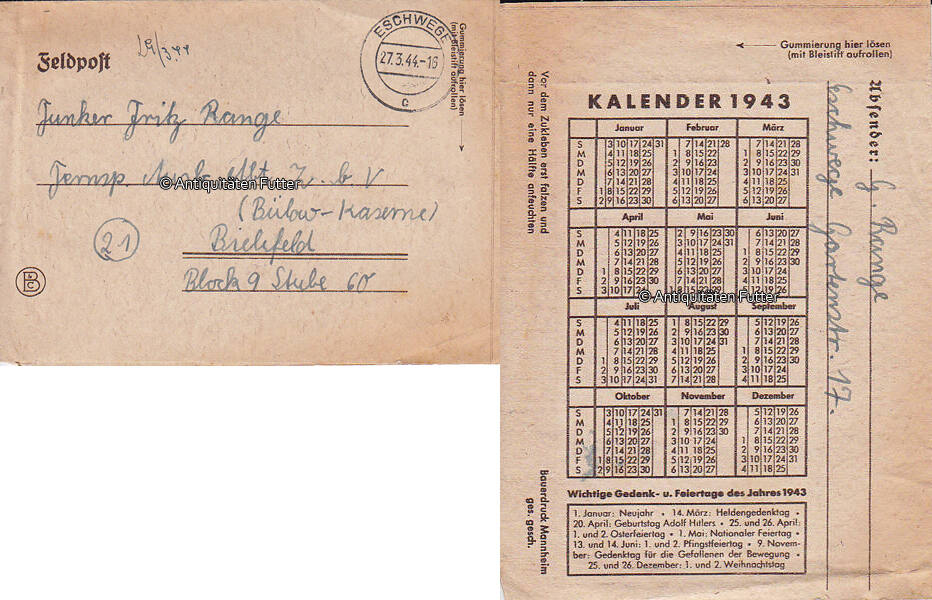 Feldpost
29/3.44
ESCHWEGE
27.3.44.-16
c
Gummierung hier lösen
(mit Bleistift aufrollen)
Junker Fritz Range
Fernsp. Abt. z. b. V
(Bülow-Kaserne)
21
Bielefeld
Block 9 Stube 60
© Antiquitäten Futter
Gummierung hier lösen
(mit Bleistift aufrollen)
Vor dem Zukleben erst falzen und
dann nur eine Hälfte anfeuchten
Absender: G. Range
Eschwege Gartenstr. 17.
KALENDER 1943
Januar Februar März
S 3 10 17 24 31 7 14 21 28 7 14 21 28
M 4 11 18 25 1 8 15 22 1 8 15 22 29
D 5 12 19 26 2 9 16 23 2 9 16 23 30
M 6 13 20 27 3 10 17 24 3 10 17 24 31
D 7 14 21 28 4 11 18 25 4 11 18 25
F 1 8 15 22 29 5 12 19 26 5 12 19 26
S 2 9 16 23 30 6 13 20 27 6 13 20 27
April Mai Juni
S 4 11 18 25 2 9 16 23 30 6 13 20 27
M 5 12 19 26 3 10 17 24 31 7 14 21 28
D 6 13 20 27 4 11 18 25 1 8 15 22 29
M 7 14 21 28 5 12 19 26 2 9 16 23 30
D 1 8 15 22 29 6 13 20 27 3 10 17 24
F 2 9 16 23 30 7 14 21 28 4 11 18 25
S 3 10 17 24 1 8 15 22 29 5 12 19 26
© Antiquitäten Futter
Juli August September
S 4 11 18 25 1 8 15 22 29 5 12 19 26
M 5 12 19 26 2 9 16 23 30 6 13 20 27
D 6 13 20 27 3 10 17 24 31 7 14 21 28
M 7 14 21 28 4 11 18 25 1 8 15 22 29
D 1 8 15 22 29 5 12 19 26 2 9 16 23 30
F 2 9 16 23 30 6 13 20 27 3 10 17 24
S 3 10 17 24 31 7 14 21 28 4 11 18 25
Oktober November Dezember
S 3 10 17 24 31 7 14 21 28 5 12 19 26
M 4 11 18 25 1 8 15 22 29 6 13 20 27
D 5 12 19 26 2 9 16 23 30 7 14 21 28
M 6 13 20 27 3 10 17 24 1 8 15 22 29
D 7 14 21 28 4 11 18 25 2 9 16 23 30
F 1 8 15 22 29 5 12 19 26 3 10 17 24 31
S 2 9 16 23 30 6 13 20 27 4 11 18 25
Wichtige Gedenk- u. Feiertage des Jahres 1943
1. Januar: Neujahr • 14. März: Heldengedenktag •
20. April: Geburtstag Adolf Hitlers • 25. und 26. April:
1. und 2. Osterfeiertag • 1. Mai: Nationaler Feiertag •
13. und 14. Juni: 1. und 2. Pfingstfeiertag • 9. Novem-
ber: Gedenktag für die Gefallenen der Bewegung •
25. und 26. Dezember: 1. und 2. Weihnachtstag
Bauerdruck Mannheim
ges. gesch.